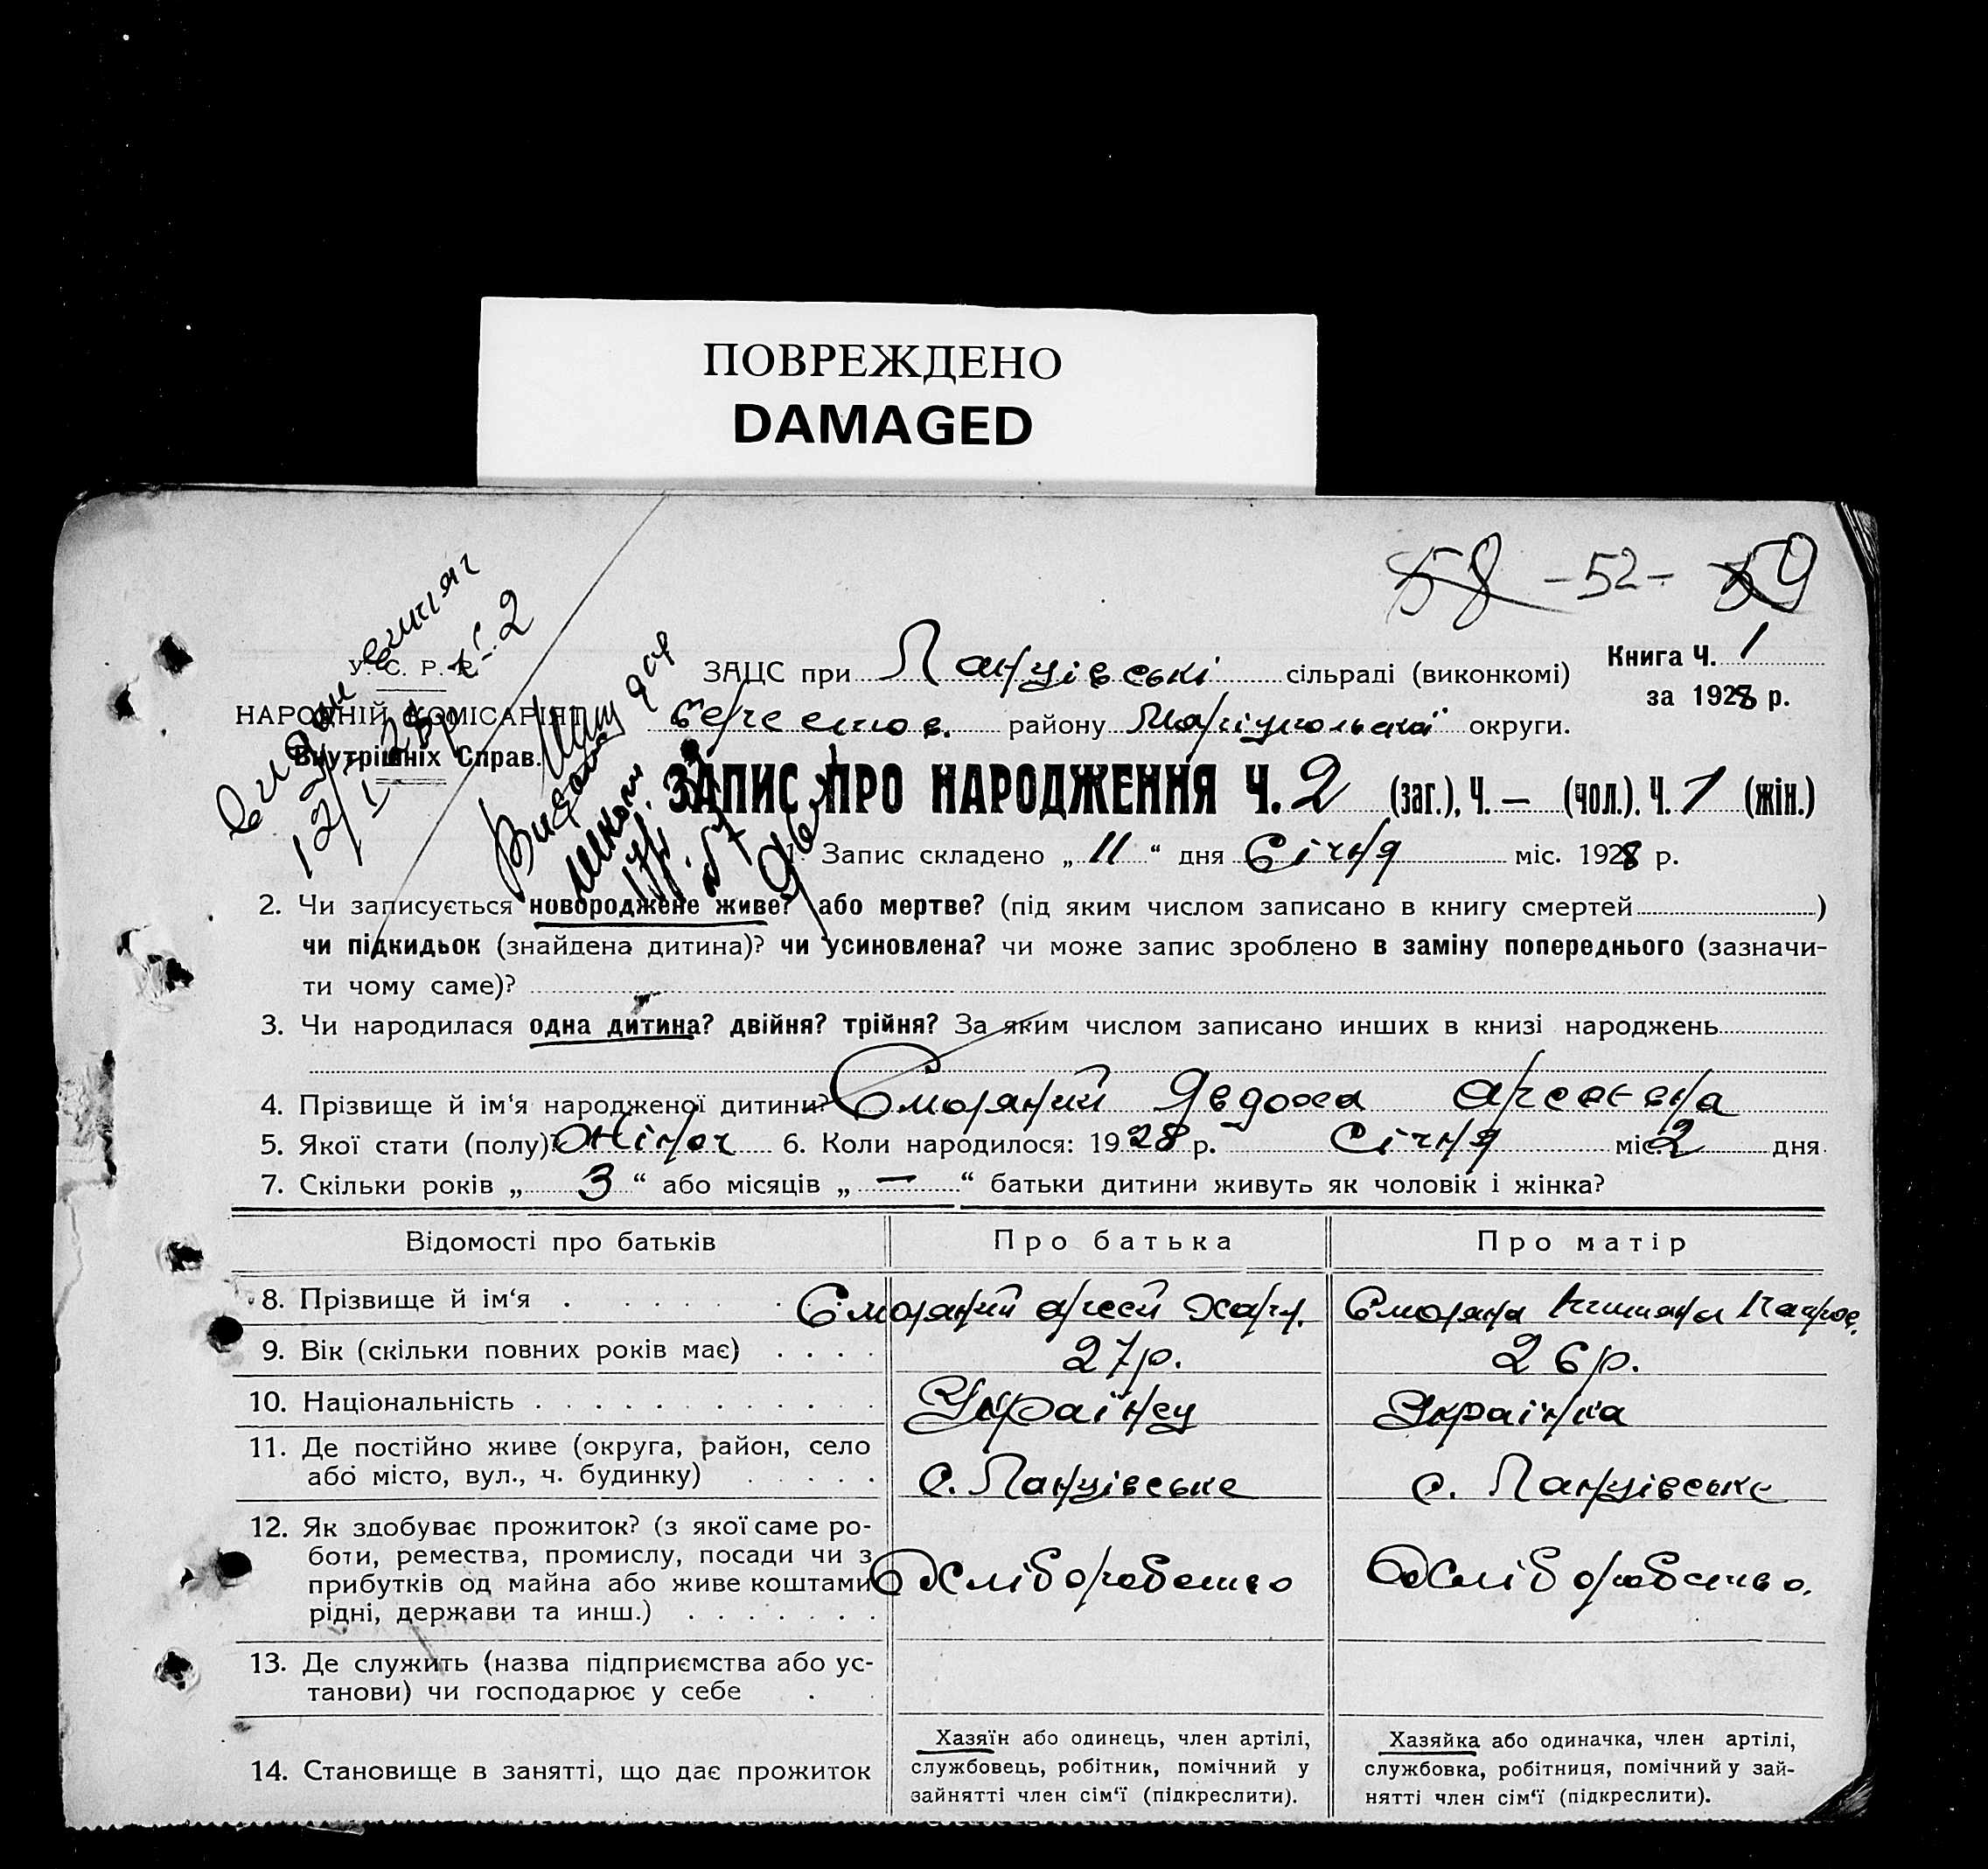 ПОВРЕЖДЕНО
DAMAGED
58 - 52 - 59
У. С. Р. Р.
НАРОДНІЙ КОМІСАРІЯТ
Внутрішніх Справ.
видан витяг
12/I-28р. № 2
ЗАЦС при Ланцівські сільраді (виконкомі)
району Маріупольскої округи.
Книга Ч. 1
за 1928 р.
ЗАПИС ПРО НАРОДЖЕННЯ Ч. 2 (заг.), Ч. — (чол.). Ч. 1 (жін.)
1. Запис складено „ 11 “ дня Січня міс. 1928 р.
2. Чи записується новороджене живе? або мертве? (під яким числом записано в книгу смертей)
чи підкидьок (знайдена дитина)? чи усиновлена? чи може запис зроблено в заміну попереднього (зазначи-
ти чому саме)?
3. Чи народилася одна дитина? двійня? трійня? За яким числом записано инших в книзі народжень
4. Прізвище й ім‘я народженої дитини? Сморяний Явдоха Арсеевна
5. Якої стати (полу)? Жіноч 6. Коли народилося: 1928 р. Січня міс. 2 дня
7. Скільки років „ 3 “ або місяців „ — “ батьки дитини живуть як чоловік і жінка?
Відомості про батьків Про батька Про матір
8. Прізвище й ім‘я Сморяний Арсей Харл. Сморяна
9. Вік (скільки повних років має) 27р. 26р.
10. Національність Українец Українка
11. Де постійно живе (округа, район, село
або місто, вул., ч. будинку) с. Ланцівське с. Ланцівське
12. Як здобуває прожиток? (з якої саме ро-
боти, ремества, промислу, посади чи з
прибутків од майна або живе коштами Хліборобство Хліборобство.
рідні, держави та инш.)
13. Де служить (назва підприємства або ус-
танови) чи господарює у себе
14. Становище в занятті, що дає прожиток
Хазяїн або одинець, член артілі,
службовець, робітник, помічний у
зайнятті член сім‘ї (підкреслити).
Хазяйка або одиначка, член артілі,
службовка, робітниця, помічний у зай-
нятті член сім‘ї (підкреслити).